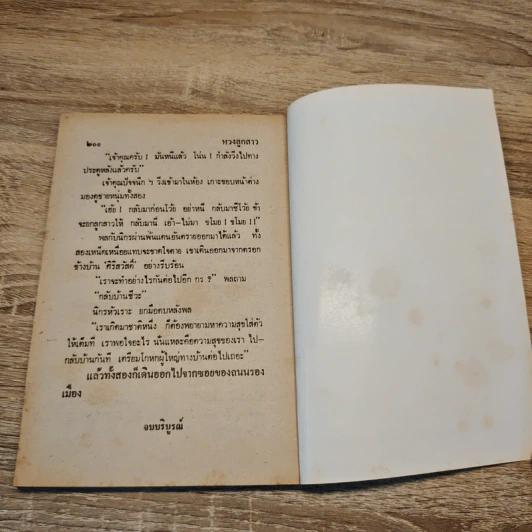 ๒๐๐ หวงลูกสาว
"เจ้าคุณครับ ! มันหนีแล้ว โน่น ! กำลังวิ่งไปทาง
ประตูหลังแล้วครับ"
เจ้าคุณปัจจนึก ฯ วิ่งเข้ามาในห้อง เกาะขอบหน้าต่าง
มองดูชายหนุ่มทั้งสอง
"เฮ้ย ! กลับมาก่อนโว้ย อย่าหนี กลับมาซีโว้ย ข้า
จะยกลูกสาวให้ กลับมานี่ เอ้า-ไม่มา ขโมย ! ขโมย ! !"
พลกับนิกรผ่านพ้นแดนอันตรายออกมาได้แล้ว ทั้ง
สองเหน็ดเหนื่อยแทบจะขาดใจตาย เขาเดินออกมาจากตรอก
ข้างบ้าน "ศิริสวัสดิ์" อย่างรีบร้อน
"เราจะทำอย่างไรกันต่อไปอีก กร ?" พลถาม
"กลับบ้านซีวะ"
นิกรหัวเราะ ยกมือตบหลังพล
"เราเกิดมาชาติหนึ่ง ก็ต้องพยายามหาความสุขใส่ตัว
ให้เต็มที่ เราพอใจอะไร นั่นแหละคือความสุขของเรา ไป-
กลับบ้านกันที เตรียมโกหกผู้ใหญ่ทางบ้านต่อไปเถอะ"
แล้วทั้งสองก็เดินออกไปจากซอยของถนนรอง
เมือง
จบบริบูรณ์